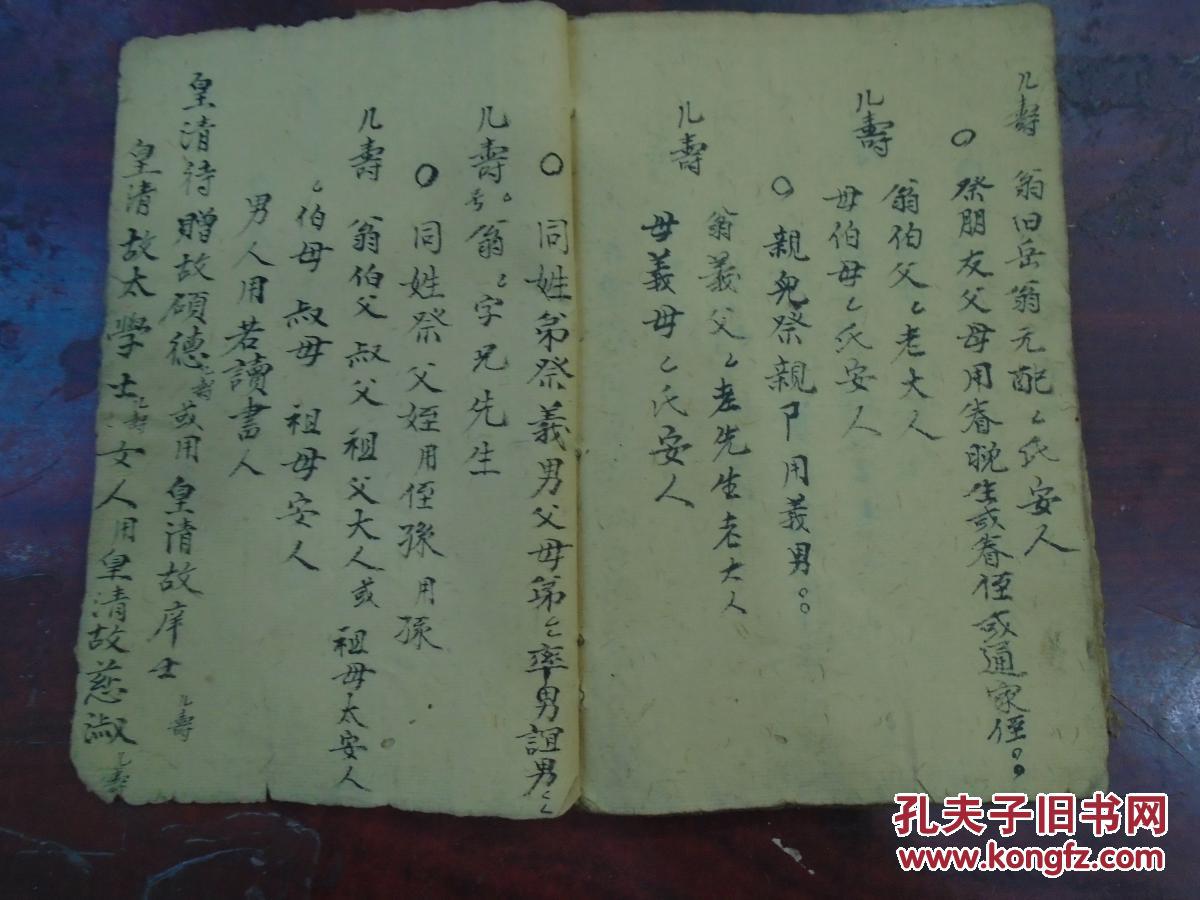 几壽 翁旧岳翁元配〻氏安人
○祭朋友父母用眷晚生或眷侄或通家侄。。
几壽 翁伯父〻老大人
母伯母〻氏安人
○親兒祭親卩用義男。。
几壽 翁義父〻老先生老大人
母義母〻氏安人
○同姓弟祭義男父母弟〻率男誼男〻
几壽。翁〻字兄先生
○同姓祭父姪用侄孫用孫
几壽 翁伯父叔父祖父大人或祖母太安人
〻伯母 叔母 祖母安人
男人用若讀書人
皇清待贈故碩德几壽或用皇清故庠士几壽
皇清故太學士几壽女人用皇清故慈淑几壽
孔夫子旧书网
www.kongfz.com